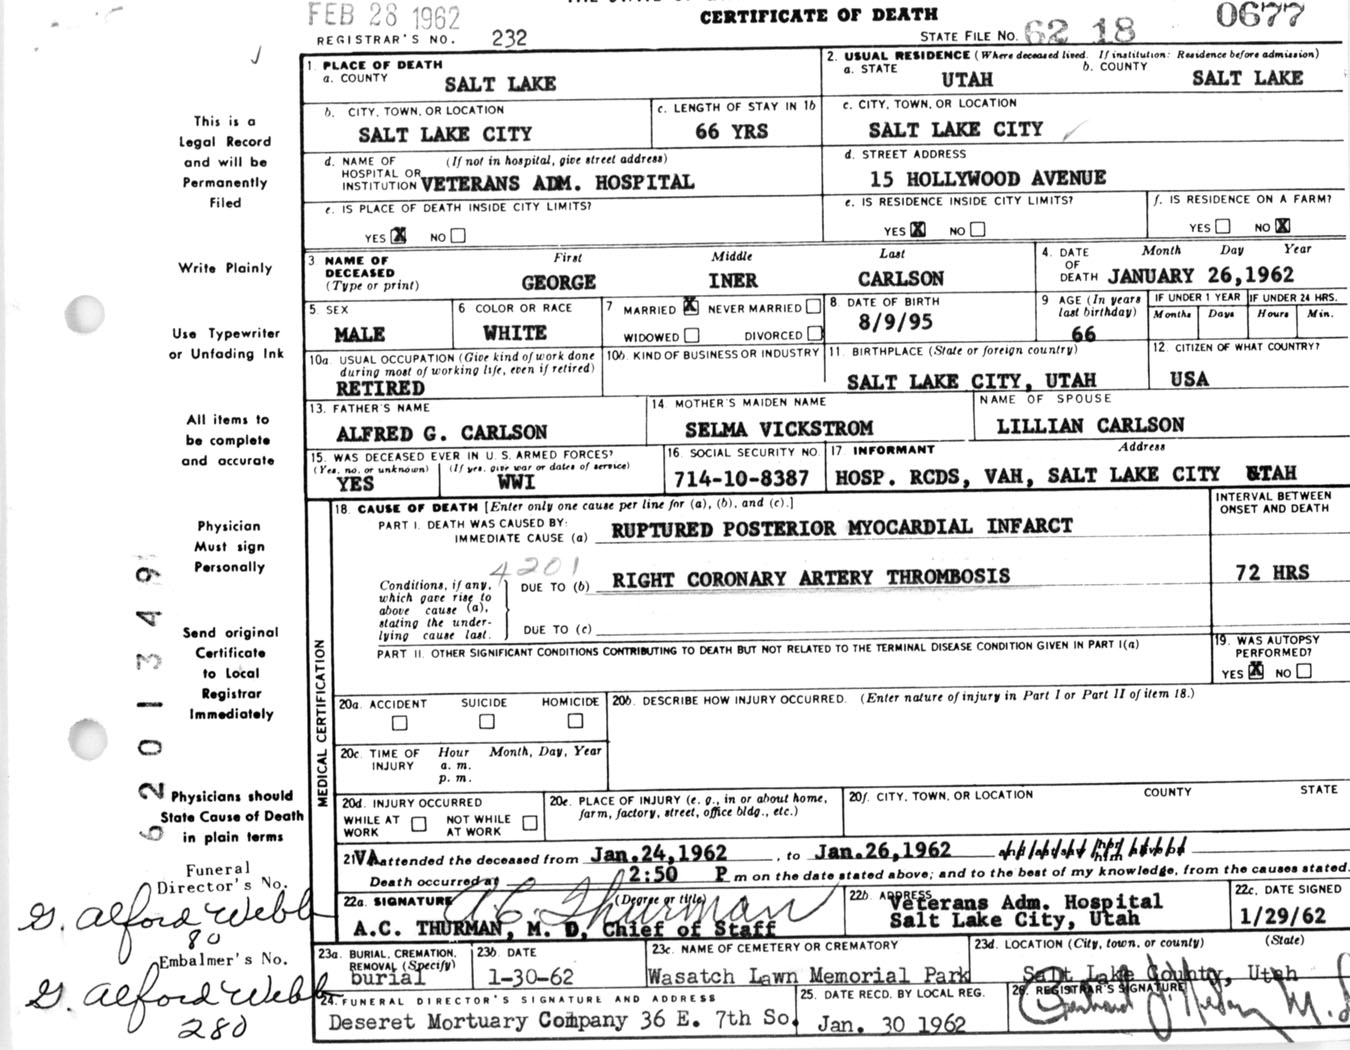 FEB 28 1962
CERTIFICATE OF DEATH
0677
REGISTRAR'S NO. 232
STATE FILE NO. 62 18
This is a
Legal Record
and will be
Permanently
Filed
Write Plainly
Use Typewriter
or Unfading Ink
All items to
be complete
and accurate
Physician
Must sign
Personally
Send original
Certificate
to Local
Registrar
Immediately
Physicians should
State Cause of Death
in plain terms
Funeral
Director's No.
G. Alford Webb
80
Embalmer's No.
G. Alford Webb
280
6201349
1. PLACE OF DEATH
a. COUNTY SALT LAKE
2. USUAL RESIDENCE (Where deceased lived. If institution: Residence before admission)
a. STATE UTAH b. COUNTY SALT LAKE
b. CITY, TOWN, OR LOCATION SALT LAKE CITY
c. LENGTH OF STAY IN 1b 66 YRS
c. CITY, TOWN, OR LOCATION SALT LAKE CITY
d. NAME OF HOSPITAL OR INSTITUTION (If not in hospital, give street address) VETERANS ADM. HOSPITAL
d. STREET ADDRESS 15 HOLLYWOOD AVENUE
e. IS PLACE OF DEATH INSIDE CITY LIMITS?
YES X NO
e. IS RESIDENCE INSIDE CITY LIMITS?
YES X NO
f. IS RESIDENCE ON A FARM?
YES NO X
3 NAME OF DECEASED (Type or print)
First Middle Last
GEORGE INER CARLSON
4. DATE OF DEATH Month Day Year
JANUARY 26,1962
5. SEX MALE
6 COLOR OR RACE WHITE
7 MARRIED X NEVER MARRIED
WIDOWED DIVORCED
8 DATE OF BIRTH 8/9/95
9 AGE (In years last birthday) 66
IF UNDER 1 YEAR Months Days
IF UNDER 24 HRS. Hours Min.
10a. USUAL OCCUPATION (Give kind of work done during most of working life, even if retired)
RETIRED
10b. KIND OF BUSINESS OR INDUSTRY
11. BIRTHPLACE (State or foreign country)
SALT LAKE CITY, UTAH
12. CITIZEN OF WHAT COUNTRY?
USA
13. FATHER'S NAME
ALFRED G. CARLSON
14. MOTHER'S MAIDEN NAME
SELMA VICKSTROM
NAME OF SPOUSE
LILLIAN CARLSON
15. WAS DECEASED EVER IN U.S. ARMED FORCES?
(Yes, no, or unknown) (If yes, give war or dates of service)
YES WWI
16. SOCIAL SECURITY NO.
714-10-8387
17. INFORMANT Address
HOSP. RCDS, VAH, SALT LAKE CITY UTAH
MEDICAL CERTIFICATION
18. CAUSE OF DEATH [Enter only one cause per line for (a), (b), and (c).]
INTERVAL BETWEEN ONSET AND DEATH
PART I. DEATH WAS CAUSED BY:
IMMEDIATE CAUSE (a) RUPTURED POSTERIOR MYOCARDIAL INFARCT
4201
Conditions, if any, which gave rise to above cause (a), stating the underlying cause last.
DUE TO (b) RIGHT CORONARY ARTERY THROMBOSIS 72 HRS
DUE TO (c)
PART II. OTHER SIGNIFICANT CONDITIONS CONTRIBUTING TO DEATH BUT NOT RELATED TO THE TERMINAL DISEASE CONDITION GIVEN IN PART I(a)
19. WAS AUTOPSY PERFORMED?
YES X NO
20a. ACCIDENT SUICIDE HOMICIDE
20b. DESCRIBE HOW INJURY OCCURRED. (Enter nature of injury in Part I or Part II of item 18.)
20c. TIME OF INJURY Hour Month, Day, Year
a. m.
p. m.
20d. INJURY OCCURRED
WHILE AT WORK NOT WHILE AT WORK
20e. PLACE OF INJURY (e. g., in or about home, farm, factory, street, office bldg., etc.)
20f. CITY, TOWN, OR LOCATION COUNTY STATE
21. VA attended the deceased from Jan.24,1962, to Jan.26,1962
Death occurred at 2:50 P m on the date stated above; and to the best of my knowledge, from the causes stated.
22a. SIGNATURE (Degree or title)
A.C. Thurman
A.C. THURMAN, M. D, Chief of Staff
22b. ADDRESS
Veterans Adm. Hospital
Salt Lake City, Utah
22c. DATE SIGNED
1/29/62
23a. BURIAL, CREMATION, REMOVAL (Specify)
burial
23b. DATE
1-30-62
23c. NAME OF CEMETERY OR CREMATORY
Wasatch Lawn Memorial Park
23d. LOCATION (City, town, or county) (State)
Salt Lake County, Utah
24. FUNERAL DIRECTOR'S SIGNATURE AND ADDRESS
Deseret Mortuary Company 36 E. 7th So.
25. DATE RECD. BY LOCAL REG.
Jan. 30 1962
26. REGISTRAR'S SIGNATURE